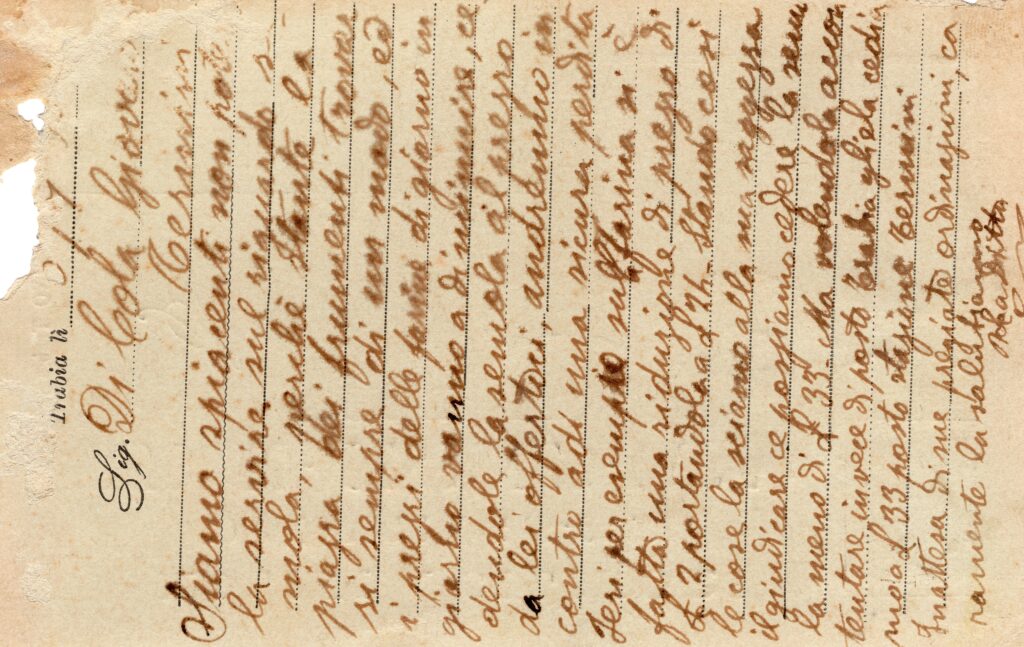 Trabia li
Sig. Di Cola Giovanni
Termini
Siamo spiacenti non poter
la servire sul riguardo s
mola, perchè stante la
piazza dei frumenti trovar
si sempre di un modo, ed
i prezzi delle farine di giorno in
giorno vanno a diminuire, ce
dendole la semola al prezzo
da lei offertoci, andremmo in
contro ad una sicura perdita
Jeri per esempio sulle farina si è
fatta una riduzione di prezzo di
£ 2 portandola a £ 26. Stando così
le cose la sciamo alla sua saggezza
il giudicare se possiamo cedere la semo
la meno di £ 35. Ma volendola accon
tentare invece di posto Trabia gliela cedia
mo a £ 33 posto stazione Termini
In attesa di sue pregiate ordinazioni, ca
ramente la salutiamo
per la Ditta